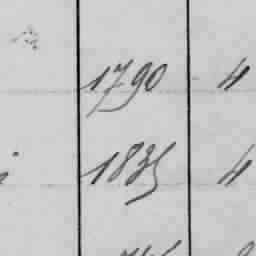 1790 4
1835 4